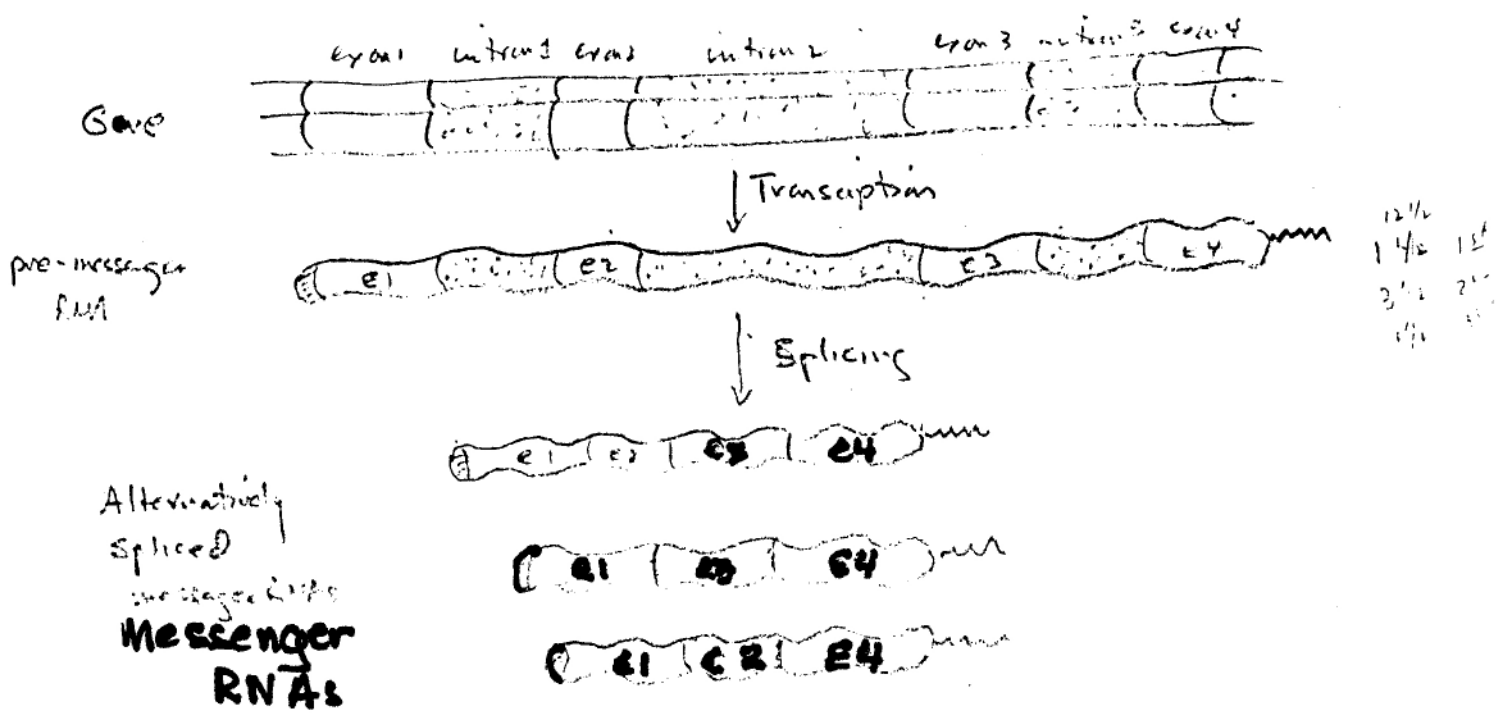 exon1 intron1 exon2 intron2 exon3 intron3 exon4
Gene
Transcription
pre-messenger
RNA
E1 e2 E3 E4
Splicing
e1 e2 e3 e4
Alternatively
spliced
messenger RNAs
e1 e3 E4
Messenger
RNAs
e1 e2 E4
12 1/2